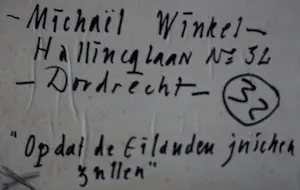 - Michaïl Winkel -
Hallincqlaan No 32
- Dordrecht - 32
"Opdat de Eilanden juichen
zullen"